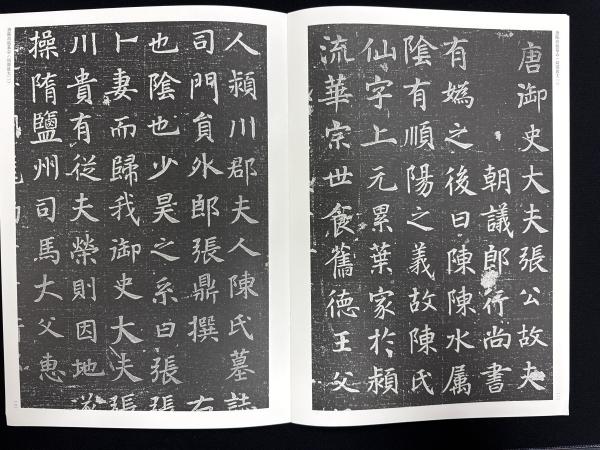 唐御史大夫張公故夫
朝議郎行尚書
有媯之後曰陳陳水属
陰有順陽之義故陳氏
仙字上元累葉家於潁
流華宗世食舊德王父
人潁川郡夫人陳氏墓誌
司門員外郎張鼎撰
也陰也少昊之系曰張張
卜妻而歸我御史大夫張
川貴有從夫榮則因地
操隋鹽州司馬大父惠